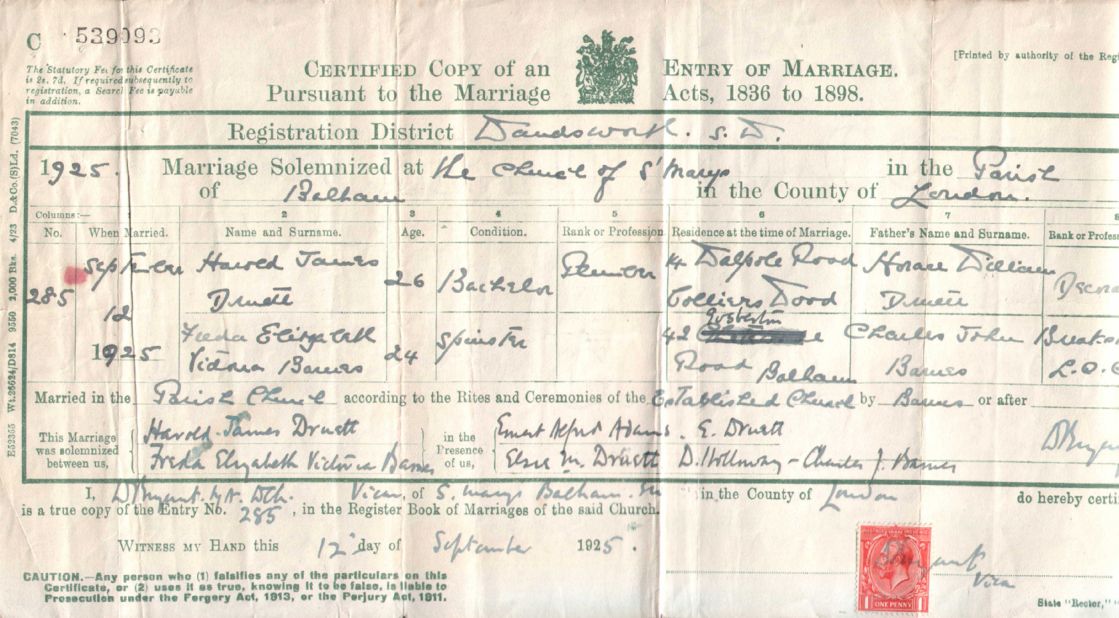 C 539093
The Statutory Fee for this Certificate
is 2s. 7d. If required subsequently to
registration, a Search Fee is payable
in addition.
[Printed by authority of the Reg
CERTIFIED COPY of an ENTRY OF MARRIAGE.
Pursuant to the Marriage Acts, 1836 to 1898.
Registration District Wandsworth. S.D.
1925. Marriage Solemnized at the Church of St Marys in the Parish
of Balham in the County of London.
Columns:— 1 2 3 4 5 6 7 8
No. When Married. Name and Surname. Age. Condition. Rank or Profession Residence at the time of Marriage. Father's Name and Surname. Rank or Profess
September Harold James 26 Bachelor Plumber 14 Walpole Road Horace William Decora
285 Druett Colliers Wood Druett
12 Freda Elizabeth Spinster 42 Charles John
1925 Victoria Barnes 24 Road Balham Barnes L.C.C
Married in the Parish Church according to the Rites and Ceremonies of the Established Church by Banns or after
This Marriage was solemnized between us,
Harold James Druett
Freda Elizabeth Victoria Barnes
in the Presence of us,
Ernest Alfred Adams. E. Druett
Elsie M. Druett D. Holloway - Charles J. Barnes
I, Vicar, of S. Marys Balham in the County of London do hereby certi
is a true copy of the Entry No. 285, in the Register Book of Marriages of the said Church.
WITNESS MY HAND this 12 day of September 1925.
Vicar
CAUTION.—Any person who (1) falsifies any of the particulars on this
Certificate, or (2) uses it as true, knowing it to be false, is liable to
Prosecution under the Forgery Act, 1913, or the Perjury Act, 1911.
ONE PENNY
State "Rector,"
E52355 Wt.26624/D814 9550 2,000 Bks. 4/23 D.&Co.(S)Ld. (7043)